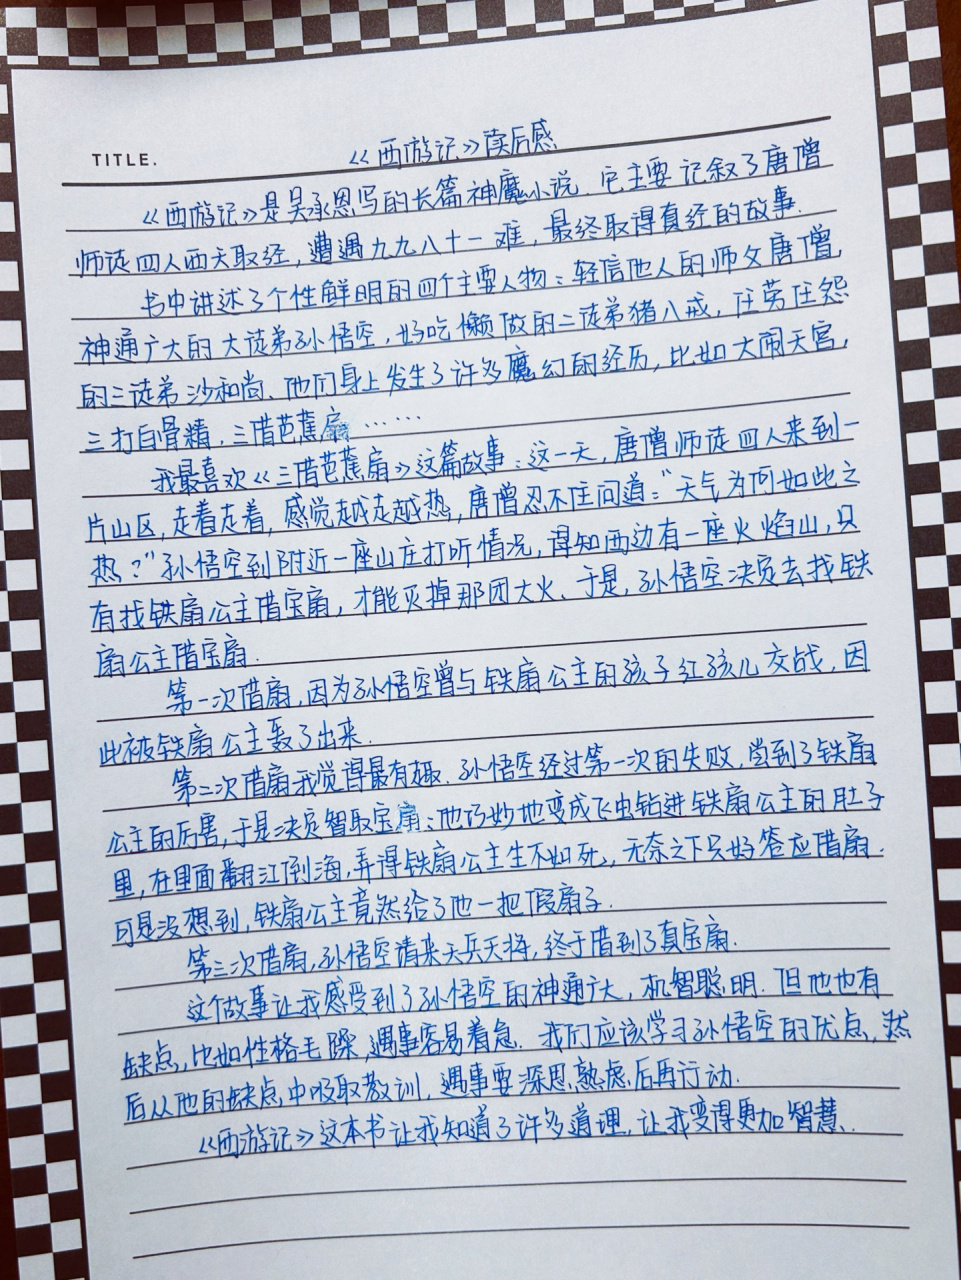 TITLE. 《西游记》读后感
《西游记》是吴承恩写的长篇神魔小说.它主要记叙了唐僧
师徒四人西天取经,遭遇九九八十一难,最终取得真经的故事.
书中讲述了个性鲜明的四个主要人物:轻信他人的师父唐僧,
神通广大的大徒弟孙悟空,好吃懒做的二徒弟猪八戒,任劳任怨
的三徒弟沙和尚.他们身上发生了许多魔幻的经历,比如大闹天宫,
三打白骨精,三借芭蕉扇……
我最喜欢《三借芭蕉扇》这篇故事:这一天,唐僧师徒四人来到一
片山区,走着走着,感觉越走越热,唐僧忍不住问道:“天气为何如此之
热?”孙悟空到附近一座山庄打听情况,得知西边有一座火焰山,只
有找铁扇公主借宝扇,才能灭掉那团大火.于是,孙悟空决定去找铁
扇公主借宝扇.
第一次借扇,因为孙悟空曾与铁扇公主的孩子红孩儿交战,因
此被铁扇公主轰了出来.
第二次借扇我觉得最有趣.孙悟空经过第一次的失败,尝到了铁扇
公主的厉害,于是决定智取宝扇:他巧妙地变成飞虫钻进铁扇公主的肚子
里,在里面翻江倒海,弄得铁扇公主生不如死,无奈之下只好答应借扇.
可是没想到,铁扇公主竟然给了他一把假扇子.
第三次借扇,孙悟空请来天兵天将,终于借到了真宝扇.
这个故事让我感受到了孙悟空的神通广大,机智聪明.但他也有
缺点,比如性格毛躁,遇事容易着急.我们应该学习孙悟空的优点,然
后从他的缺点中吸取教训,遇事要深思熟虑后再行动.
《西游记》这本书让我知道了许多道理,让我变得更加智慧.